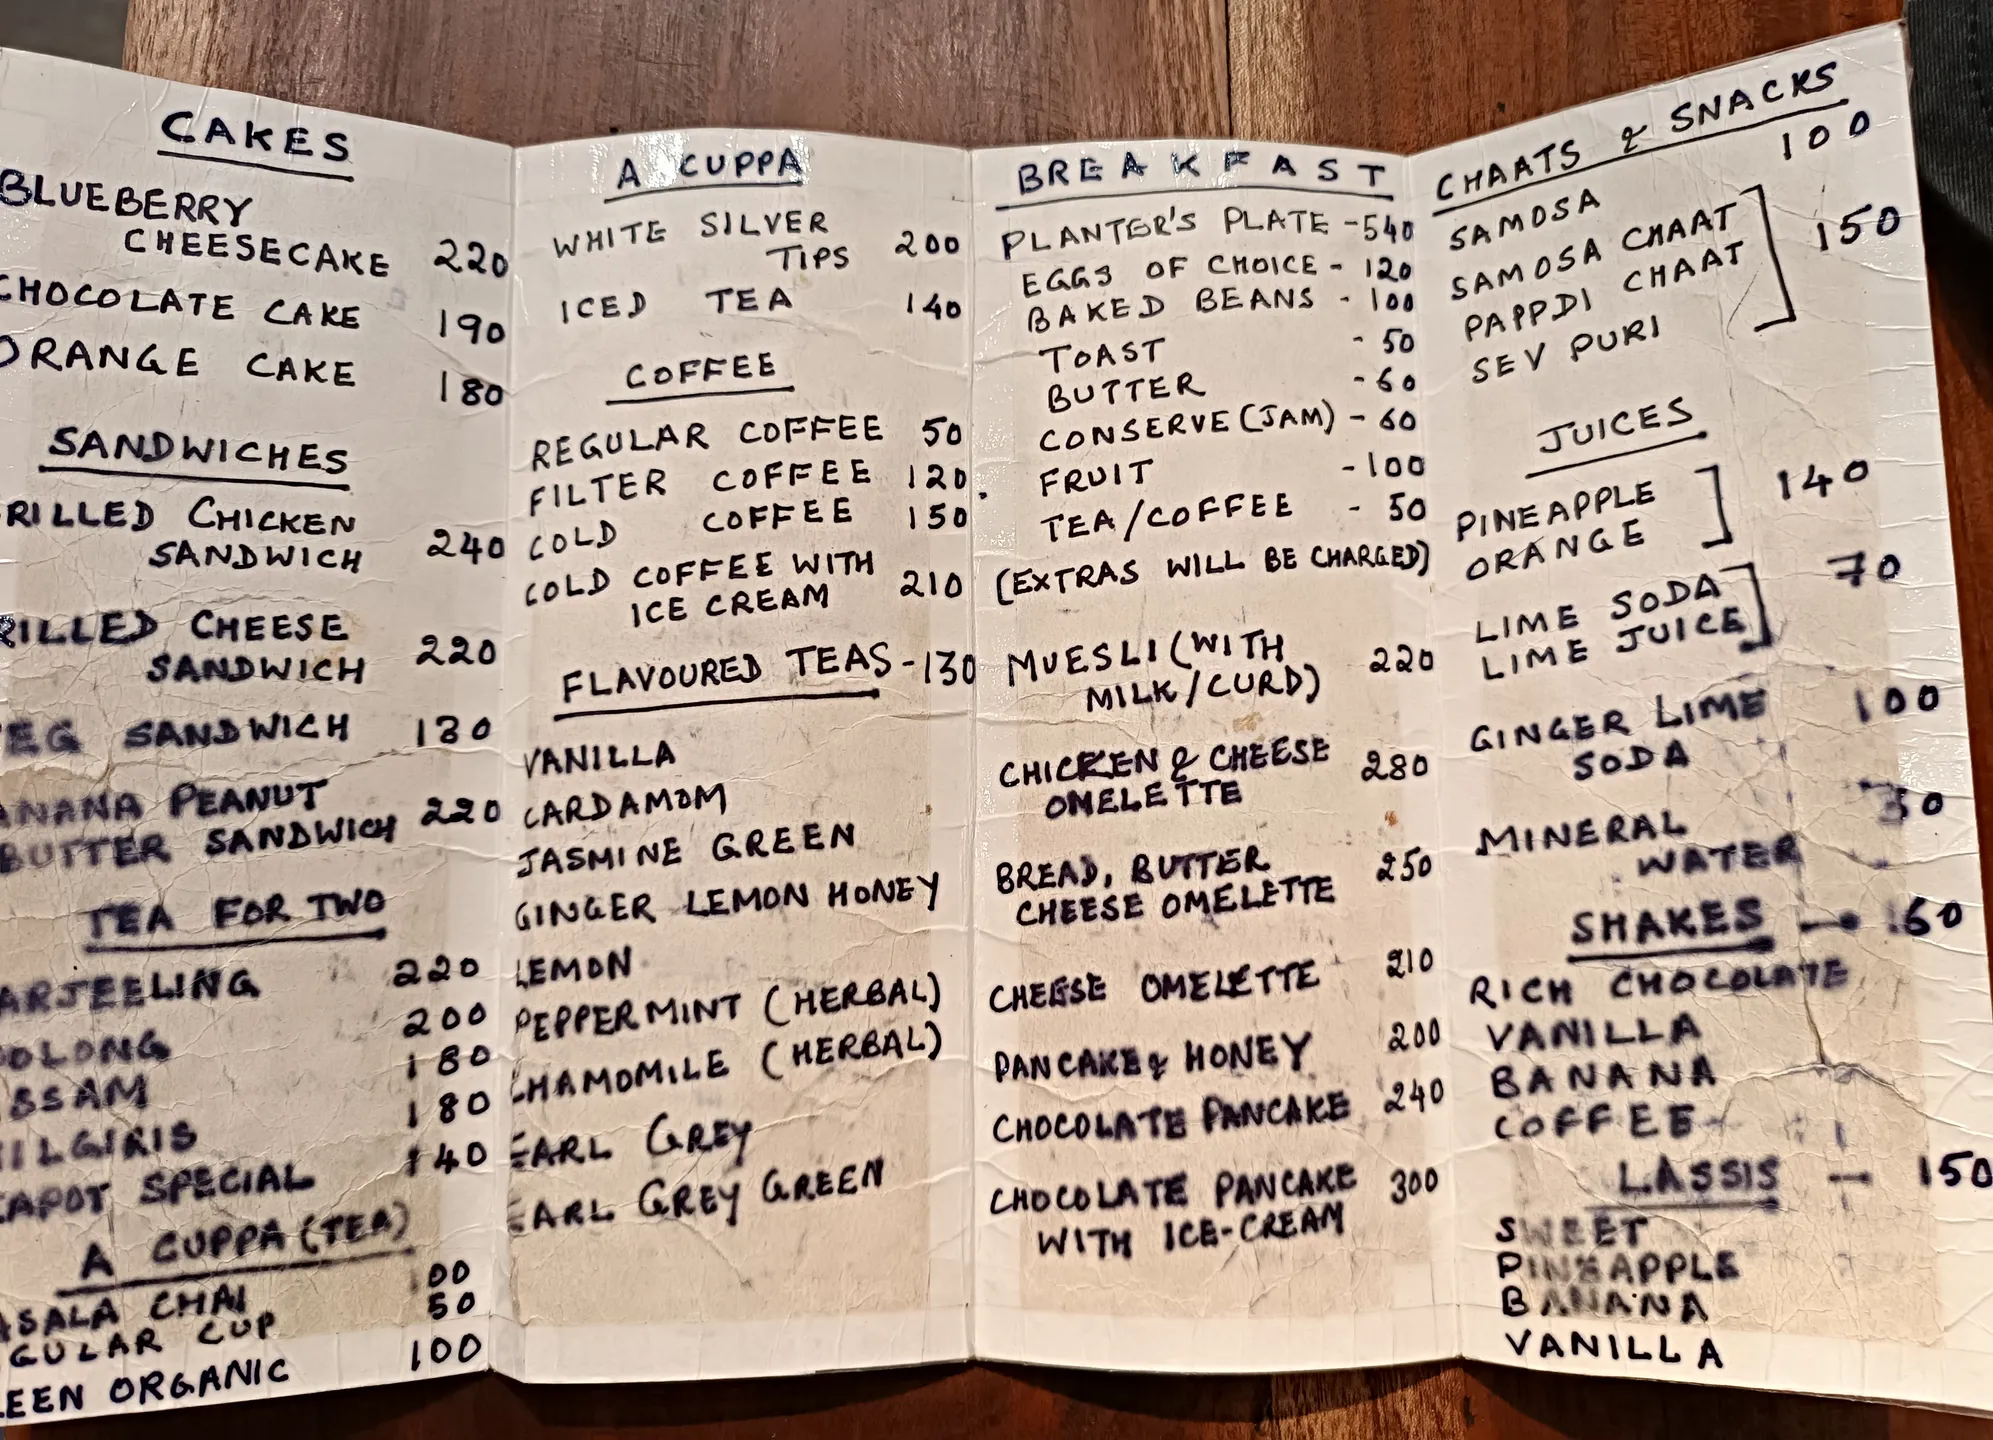 CAKES
BLUEBERRY
CHEESECAKE 220
CHOCOLATE CAKE 190
ORANGE CAKE 180
SANDWICHES
RILLED CHICKEN
SANDWICH 240
RILLED CHEESE
SANDWICH 220
EG SANDWICH 130
ANANA PEANUT
BUTTER SANDWICH 220
TEA FOR TWO
ARJEELING 220
OLONG 200
SSAM 180
ILGIRIS 180
EAPOT SPECIAL 140
A CUPPA (TEA)
ASALA CHAI 00
GULAR CUP 50
EEN ORGANIC 100
A CUPPA
WHITE SILVER
TIPS 200
ICED TEA 140
COFFEE
REGULAR COFFEE 50
FILTER COFFEE 120.
COLD COFFEE 150
COLD COFFEE WITH
ICE CREAM 210
FLAVOURED TEAS -130
VANILLA
CARDAMOM
JASMINE GREEN
GINGER LEMON HONEY
LEMON
PEPPERMINT (HERBAL)
CHAMOMILE (HERBAL)
EARL GREY
EARL GREY GREEN
BREAKFAST
PLANTER'S PLATE -540
EGGS OF CHOICE - 120
BAKED BEANS - 100
TOAST - 50
BUTTER - 60
CONSERVE (JAM) - 60
FRUIT - 100
TEA/COFFEE - 50
(EXTRAS WILL BE CHARGED)
MUESLI (WITH
MILK/CURD) 220
CHICKEN & CHEESE
OMELETTE 280
BREAD, BUTTER
CHEESE OMELETTE 250
CHEESE OMELETTE 210
PANCAKE & HONEY 200
CHOCOLATE PANCAKE 240
CHOCOLATE PANCAKE
WITH ICE-CREAM 300
CHAATS & SNACKS
SAMOSA 100
SAMOSA CHAAT
PAPPDI CHAAT 150
SEV PURI
JUICES
PINEAPPLE
ORANGE 140
LIME SODA
LIME JUICE 70
GINGER LIME
SODA 100
MINERAL
WATER
SHAKES
RICH CHOCOLATE
VANILLA
BANANA
COFFEE
LASSIS - 150
SWEET
PINEAPPLE
BANANA
VANILLA